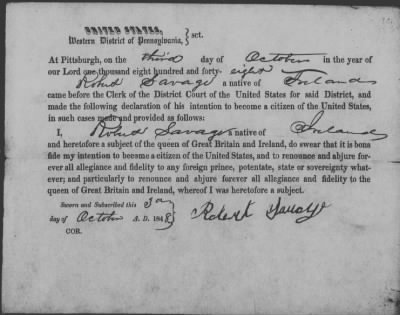 UNITED STATES,
Western District of Pennsylvania, } sct.
At Pittsburgh, on the third day of October in the year of
our Lord one thousand eight hundred and forty-eight
Robert Savage a native of Ireland
came before the Clerk of the District Court of the United States for said District, and
made the following declaration of his intention to become a citizen of the United States,
in such cases made and provided as follows:
I, Robert Savage a native of Ireland
and heretofore a subject of the queen of Great Britain and Ireland, do swear that it is bona
fide my intention to become a citizen of the United States, and to renounce and abjure for-
ever all allegiance and fidelity to any foreign prince, potentate, state or sovereignty what-
ever; and particularly to renounce and abjure forever all allegiance and fidelity to the
queen of Great Britain and Ireland, whereof I was heretofore a subject.
Sworn and Subscribed this 3d
day of October A. D. 1848 } Robert Savage
COR.